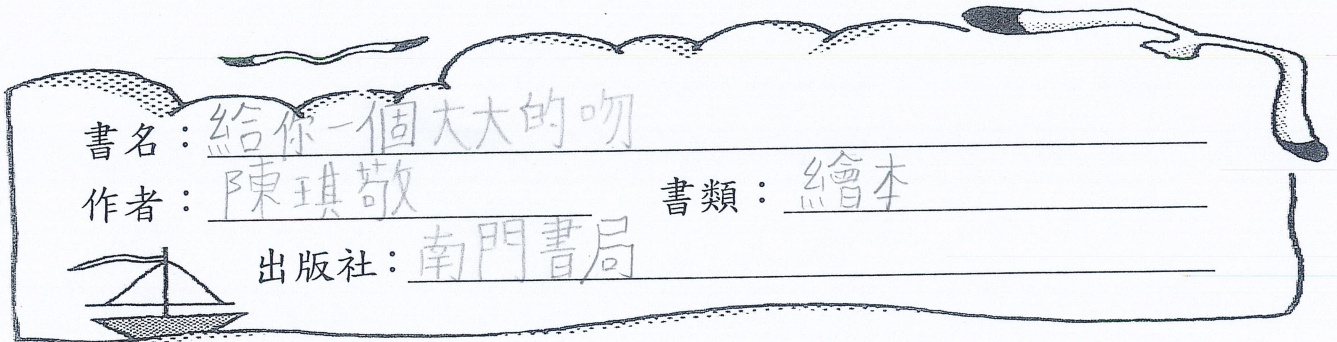 書名：給你一個大大的吻
作者：陳琪敬 書類：繪本
出版社：南門書局